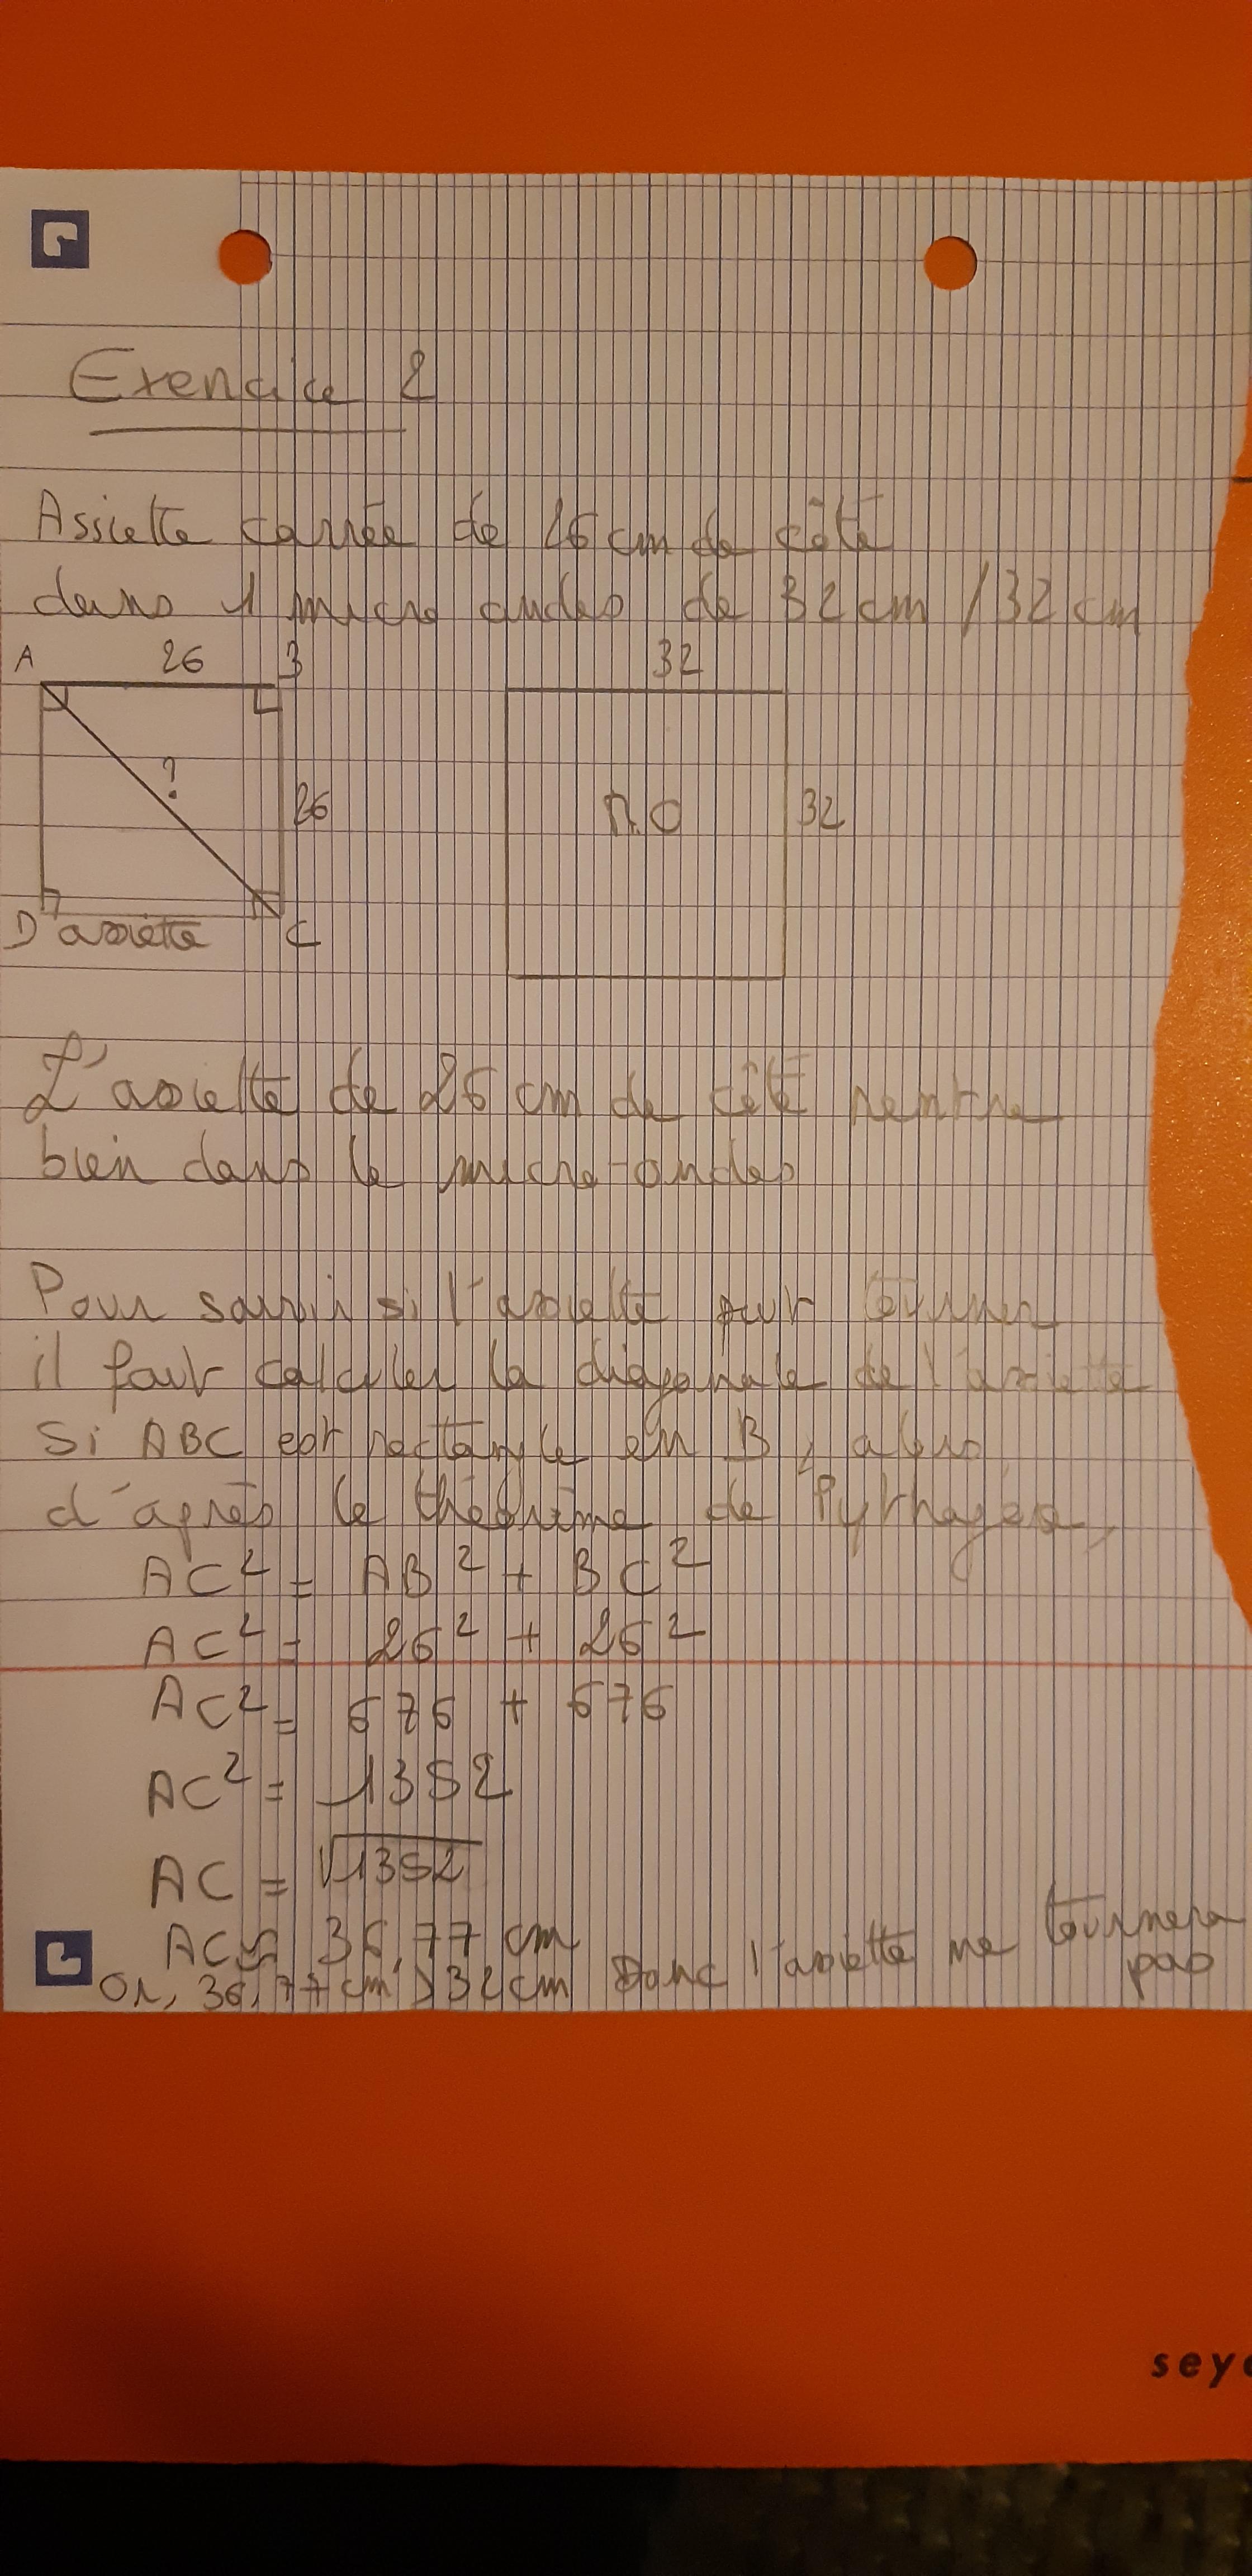 Exercice 2
Assiette carrée de 26 cm de côté
dans 1 micro ondes de 32 cm / 32 cm
A 26 B 32
? 26 M.O 32
D assiette C
L'assiette de 26 cm de côté rentre
bien dans le micro-ondes
Pour savoir si l'assiette peut tourner
il faut calculer la diagonale de l'assiette
Si ABC est rectangle en B, alors
d'après le théorème de Pythagore,
AC² = AB² + BC²
AC² = 26² + 26²
AC² = 676 + 676
AC² = 1352
AC = √1352
AC ≈ 36,77 cm
Or, 36,77 cm > 32 cm Donc l'assiette ne tournera
pas
seye